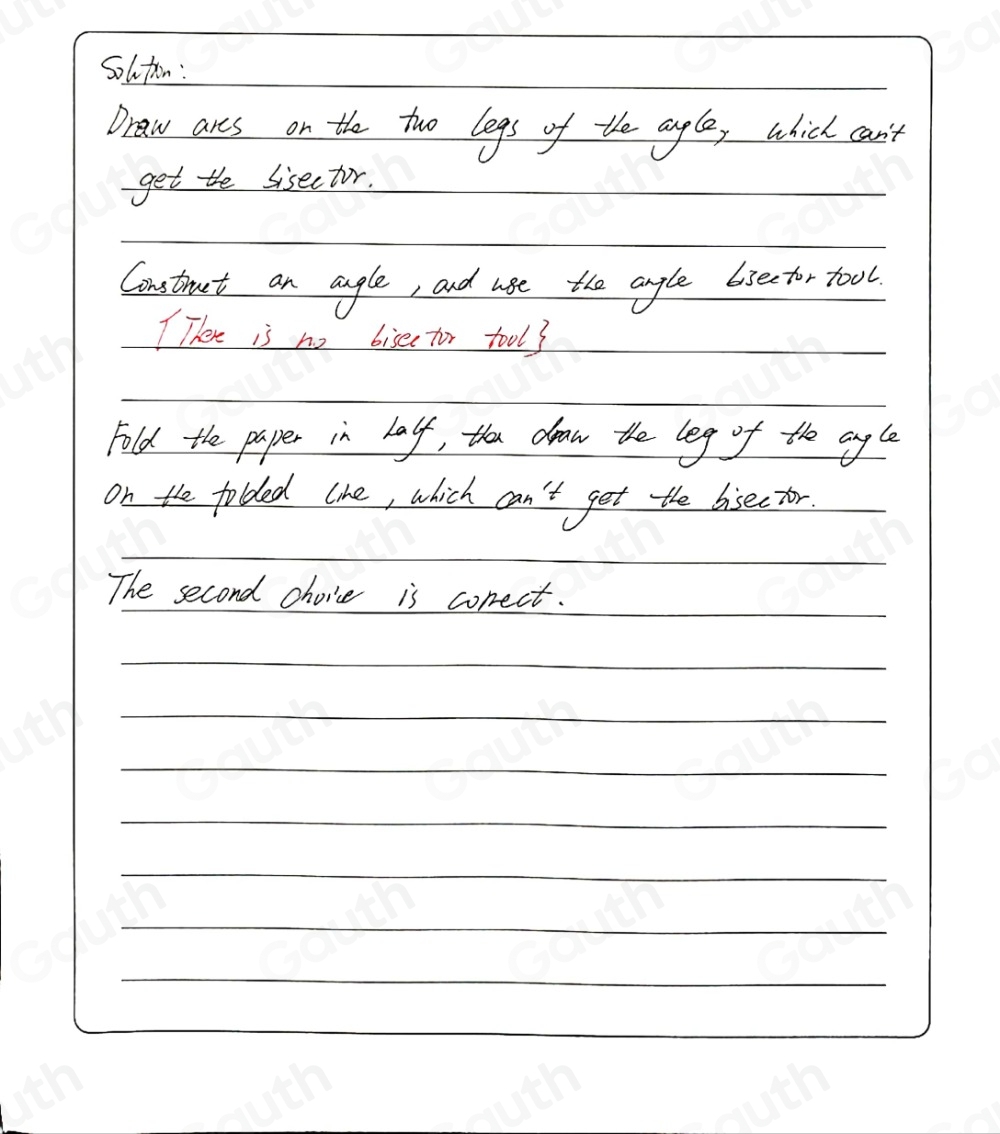 Solution:
Draw arcs on the two legs of the angle, which can't
get the bisector.
Construct an angle, and use the angle bisector tool.
{There is no bisector tool}
Fold the paper in half, then draw the leg of the angle
on the folded line, which can't get the bisector.
The second choice is correct.